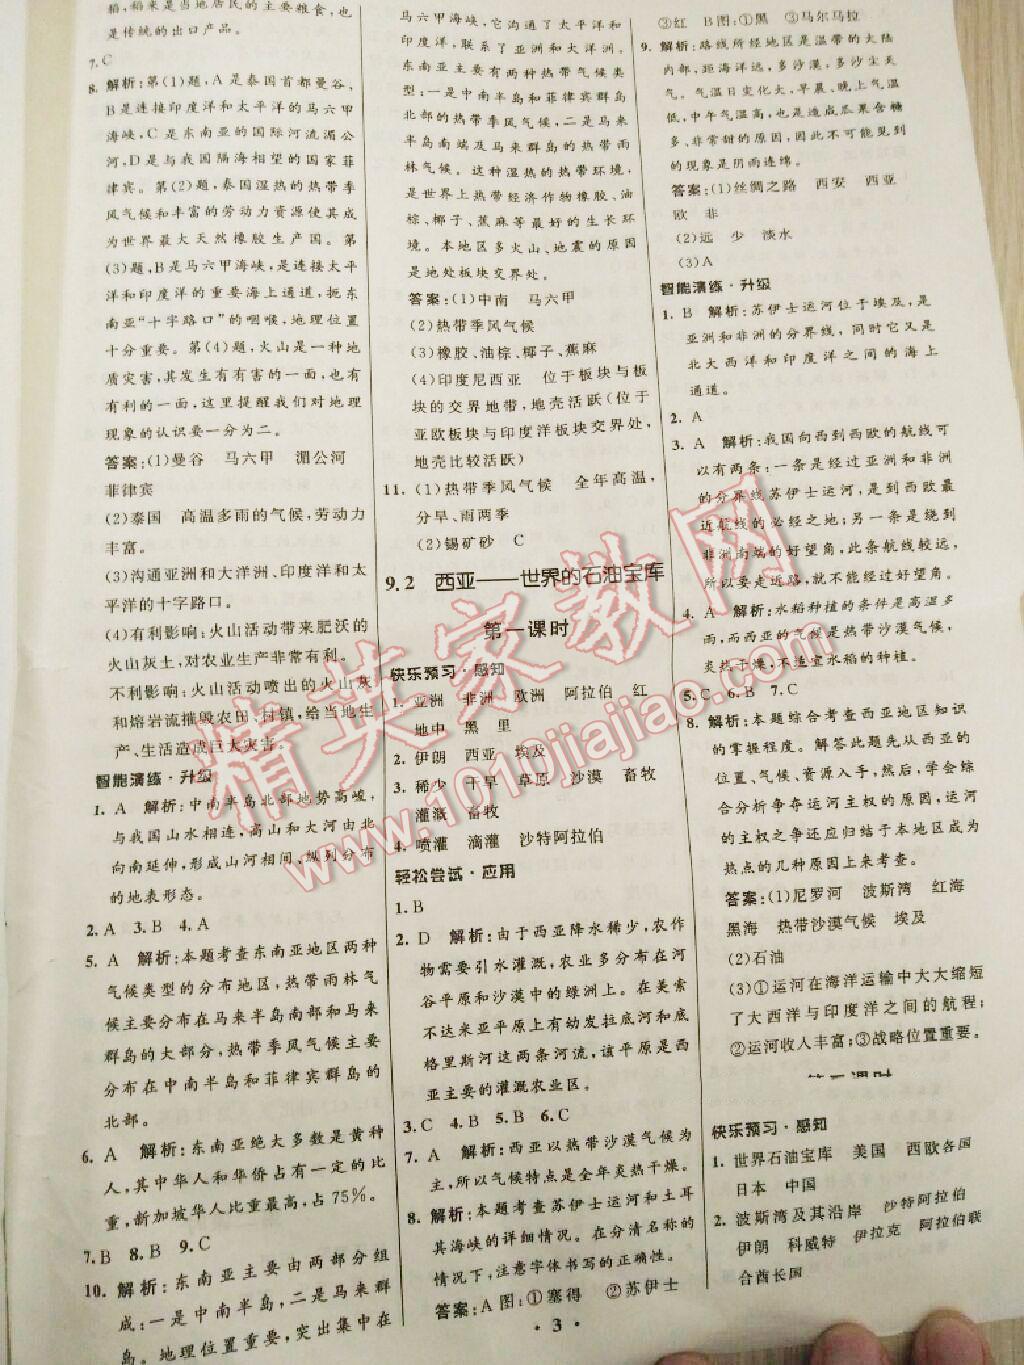 稻,稻米是当地居民的主要粮食,也
是传统的出口产品。
7. C
8. 解析:第(1)题,A是泰国首都曼谷,
B是连接印度洋和太平洋的马六甲
海峡,C是东南亚的国际河流湄公
河,D是与我国隔海相望的国家菲
律宾。第(2)题,泰国湿热的热带季
风气候和丰富的劳动力资源使其成
为世界最大天然橡胶生产国。第
(3)题,B是马六甲海峡,是连接太平
洋和印度洋的重要海上通道,扼东
南亚“十字路口”的咽喉,地理位置
十分重要。第(4)题,火山是一种地
质灾害,其发生有有害的一面,也有
有利的一面,这里提醒我们对地理
现象的认识要一分为二。
答案:(1)曼谷 马六甲 湄公河
菲律宾
(2)泰国 高温多雨的气候,劳动力
丰富。
(3)沟通亚洲和大洋洲、印度洋和太
平洋的十字路口。
(4)有利影响:火山活动带来肥沃的
火山灰土,对农业生产非常有利。
不利影响:火山活动喷出的火山灰
和熔岩流摧毁农田、村镇,给当地生
产、生活造成巨大灾害。
智能演练·升级
1. A 解析:中南半岛北部地势高峻,
与我国山水相连,高山和大河由北
向南延伸,形成山河相间、纵列分布
的地表形态。
2. A 3. B 4. A
5. A 解析:本题考查东南亚地区两种
气候类型的分布地区,热带雨林气
候主要分布在马来半岛南部和马来
群岛的大部分,热带季风气候主要
分布在中南半岛和菲律宾群岛的
北部。
6. A 解析:东南亚绝大多数是黄种
人,其中华人和华侨占有一定的比
重,新加坡华人比重最高,占75%。
7. B 8. B 9. C
10. 解析:东南亚主要由两部分组
成:一是中南半岛,二是马来群
岛。地理位置重要,突出集中在
马六甲海峡,它沟通了太平洋和
印度洋,联系了亚洲和大洋洲。
东南亚主要有两种热带气候类
型:一是中南半岛和菲律宾群岛
北部的热带季风气候,二是马来
半岛南端及马来群岛的热带雨
林气候。这种湿热的热带环境,
是世界上热带经济作物橡胶、油
棕、椰子、蕉麻等最好的生长环
境。本地区多火山、地震的原因
是地处板块交界处。
答案:(1)中南 马六甲
(2)热带季风气候
(3)橡胶、油棕、椰子、蕉麻
(4)印度尼西亚 位于板块与板
块的交界地带,地壳活跃(位于
亚欧板块与印度洋板块交界处,
地壳比较活跃)
11. (1)热带季风气候 全年高温,
分旱、雨两季
(2)锡矿砂 C
9.2 西亚——世界的石油宝库
第一课时
快乐预习·感知
1. 亚洲 非洲 欧洲 阿拉伯 红
地中 黑 里
2. 伊朗 西亚 埃及
3. 稀少 干旱 草原 沙漠 畜牧
灌溉 畜牧
4. 喷灌 滴灌 沙特阿拉伯
轻松尝试·应用
1. B
2. D 解析:由于西亚降水稀少,农作
物需要引水灌溉,农业多分布在河
谷平原和沙漠中的绿洲上。在美索
不达米亚平原上有幼发拉底河和底
格里斯河这两条河流,该平原是西
亚主要的灌溉农业区。
3. C 4. B 5. B 6. C
7. A 解析:西亚以热带沙漠气候为
主,所以气候特点是全年炎热干燥。
8. 解析:本题考查苏伊士运河和土耳
其海峡的详细情况。在分清名称的
情况下,注意字体书写的正确性。
答案:A图:①塞得 ②苏伊士
③红 B图:①黑 ②马尔马拉
9. 解析:路线所经地区是温带的大陆
内部,距海洋远,多沙漠,多沙尘天
气。气温日变化大,早晨、晚上气温
低,中午气温高,也是造成瓜果含糖
多、非常甜的原因,因此不可能见到
的现象是阴雨连绵。
答案:(1)丝绸之路 西安 西亚
欧 非
(2)远 少 淡水
(3)A
智能演练·升级
1. B 解析:苏伊士运河位于埃及,是
亚洲和非洲的分界线,同时它又是
北大西洋和印度洋之间的海上
通道。
2. A
3. A 解析:我国向西到西欧的航线可
以有两条:一条是经过亚洲和非洲
的分界线苏伊士运河,是到西欧最
近航线的必经之地;另一条是绕到
非洲南端的好望角,此条航线较远,
所以要走近路,就不能经过好望角。
4. A 解析:水稻种植的条件是高温多
雨,而西亚的气候是热带沙漠气候,
炎热干燥,不适宜水稻的种植。
5. C 6. B 7. C
8. 解析:本题综合考查西亚地区知识
的掌握程度。解答此题先从西亚的
位置、气候、资源入手,然后,学会综
合分析争夺运河主权的原因,运河
的主权之争还应归结于本地区成为
热点的几种原因上来考查。
答案:(1)尼罗河 波斯湾 红海
黑海 热带沙漠气候 埃及
(2)石油
(3)①运河在海洋运输中大大缩短
了大西洋与印度洋之间的航程;
②运河收入丰富;③战略位置重要。
第二课时
快乐预习·感知
1. 世界石油宝库 美国 西欧各国
日本 中国
2. 波斯湾及其沿岸 沙特阿拉伯
伊朗 科威特 伊拉克 阿拉伯联
合酋长国
· 3 ·
精英家教网
www.1010jiajiao.com